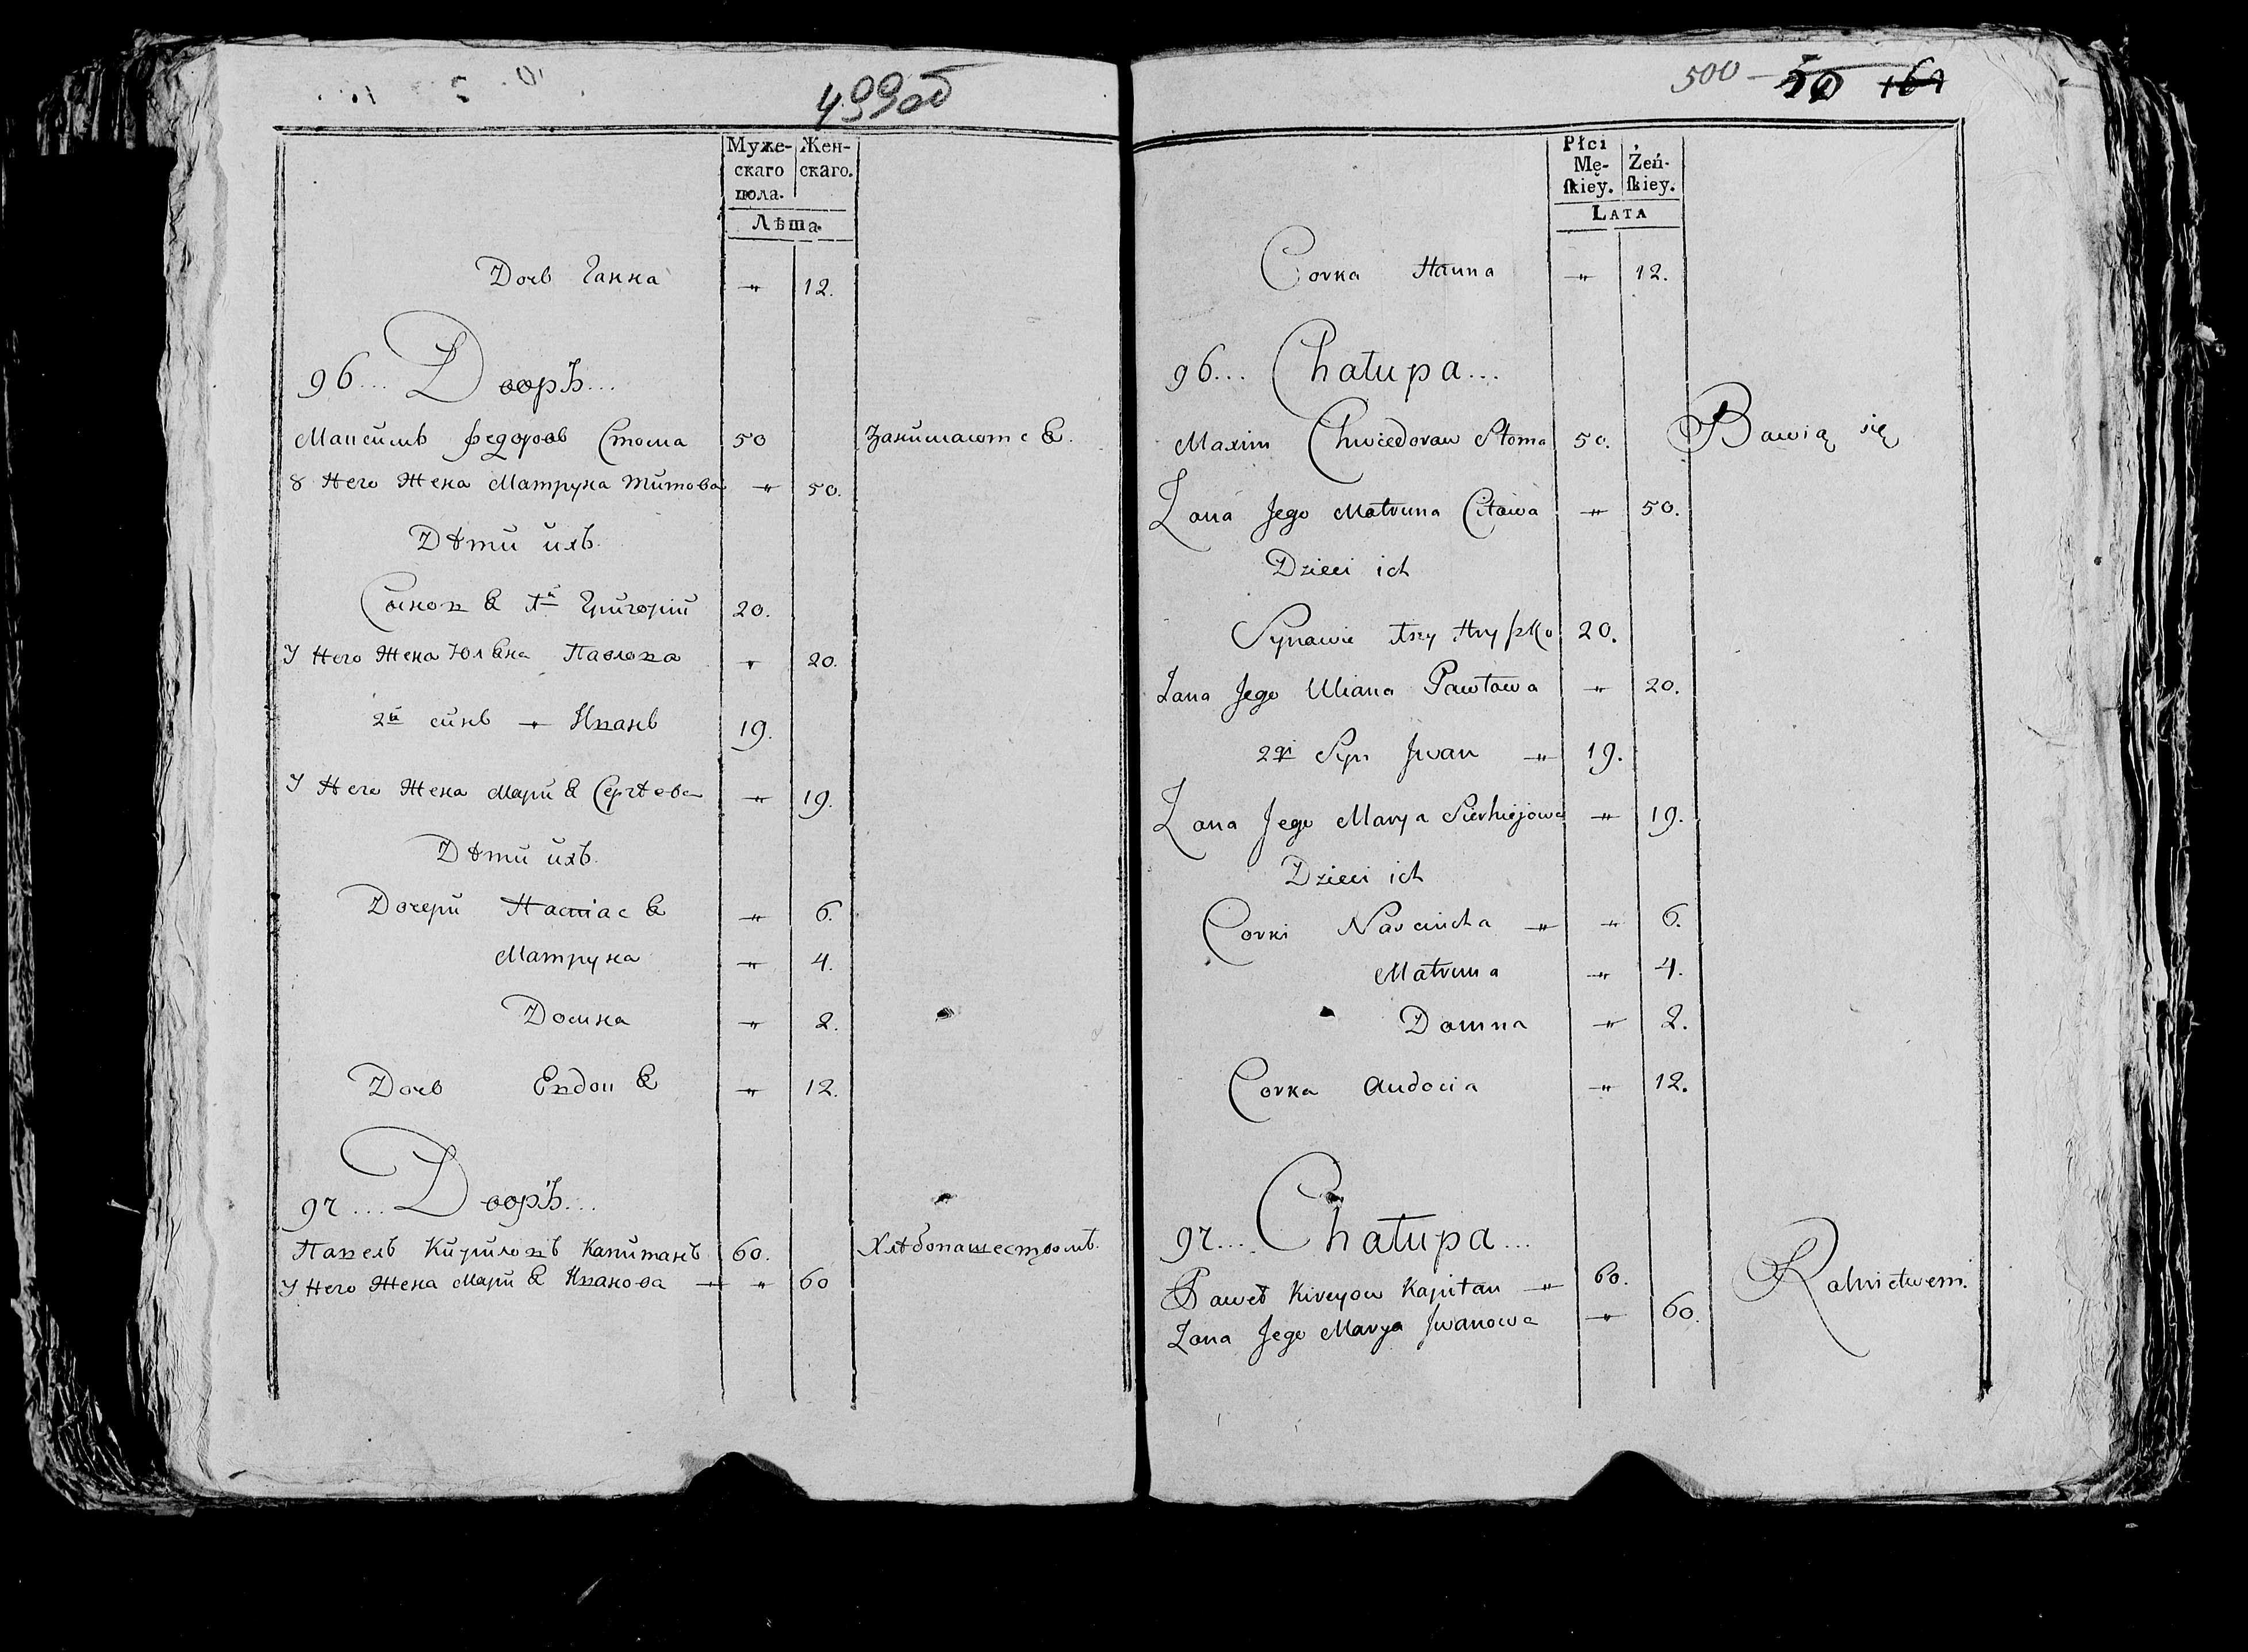 499об
Муже-
скаго
пола.
Жен-
скаго.
Лѣта.
Дочь Ганна " 12.
96... Дворъ...
Максимъ Федоровъ Стома 50 Занимаются.
У Него Жена Матруна Титова " 50.
Дѣти ихъ.
Сыновя 1й Григорій 20.
У Него Жена Юляна Павлова " 20.
2й синъ " Иванъ 19.
У Него Жена Мария Сергѣева " 19.
Дѣти ихъ.
Дочери Настася " 6.
Матруна " 4.
Домна " 2.
Дочь Евдокия " 12.
97... Дворъ...
Павелъ Кириловъ Капитанъ 60. Хлѣбопашествомъ.
У Него Жена Мария Иванова " " 60
500 50 161
Płci
Mę-
ſkiey.
Żeń-
ſkiey.
LATA
Corka Hanna " 12.
96... Chałupa...
Maxim Chwiedoraw Stoma 50. Bawią się
Żona Jego Matruna Citowa " 50.
Dzieci ich
Synawie 1szy Hryſzko 20.
Żona Jego Uliana Pawłowa " 20.
2gi Syn Jwan " 19.
Żona Jego Marya Sierhiejowa " 19.
Dzieci ich
Corki " " 6.
Matruna " 4.
Domna " 2.
Corka Audocia " 12.
97... Chałupa...
Paweł Kireyow Kapitan " 60. Rolnictwem.
Żona Jego Marya Jwanowa " 60.